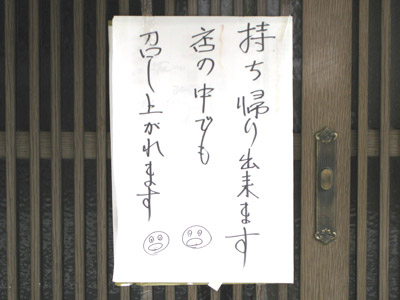 持ち帰り出来ます
店の中でも
召し上がれます